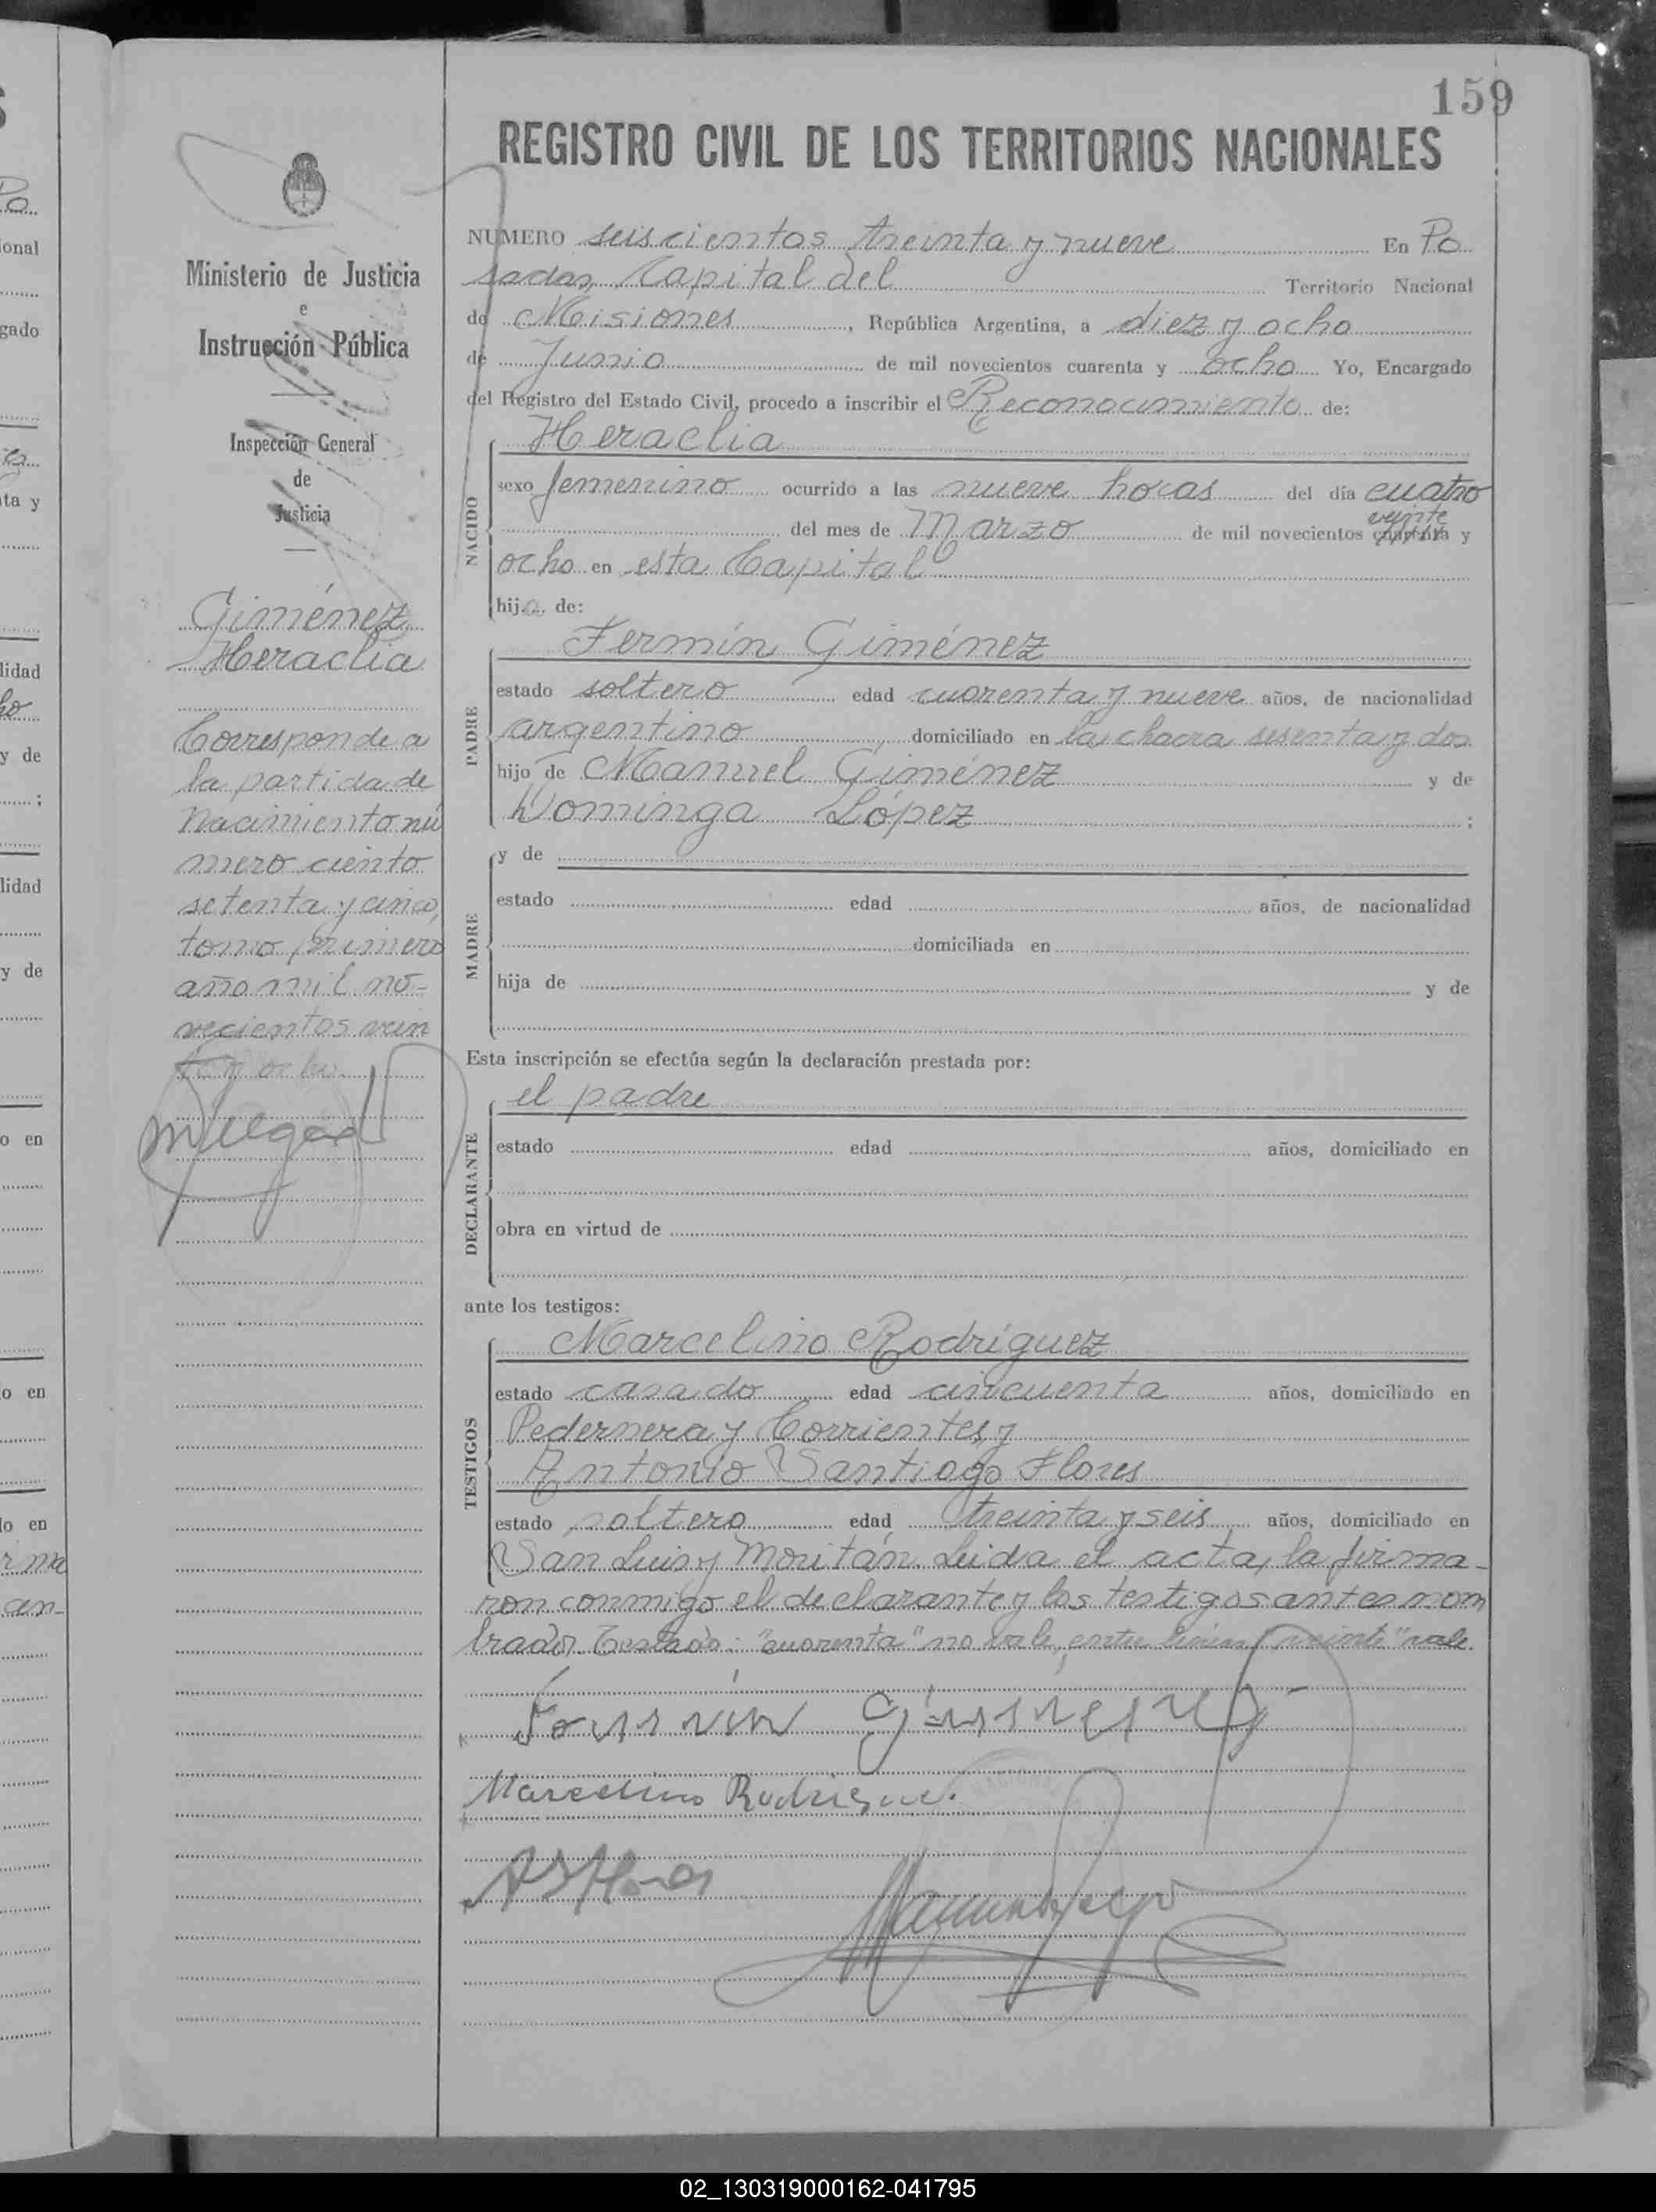 159
REGISTRO CIVIL DE LOS TERRITORIOS NACIONALES
Ministerio de Justicia
e
Instrucción Pública
Inspección General
de
Justicia
Giménez
Heraclia
Corresponde a
la partida de
nacimiento nú
mero ciento
setenta y cinco,
tomo primero
año mil no-
vecientos vein
te y ocho.
NUMERO seiscientos treinta y nueve En Po
sadas, Capital del Territorio Nacional
de Misiones, República Argentina, a diez y ocho
de Junio de mil novecientos cuarenta y ocho Yo, Encargado
del Registro del Estado Civil, procedo a inscribir el Reconocimiento de:
NACIDO
Heraclia
sexo femenino ocurrido a las nueve horas del día cuatro
veinte
del mes de Marzo de mil novecientos cuarenta y
ocho en esta Capital
hija de:
PADRE
Fermín Giménez
estado soltero edad cuarenta y nueve años, de nacionalidad
argentino, domiciliado en la chacra sesenta y dos
hijo de Manuel Giménez y de
Dominga López ;
MADRE
y de
estado edad años, de nacionalidad
domiciliada en
hija de y de
Esta inscripción se efectúa según la declaración prestada por:
DECLARANTE
el padre
estado edad años, domiciliado en
obra en virtud de
ante los testigos:
TESTIGOS
Marcelino Rodríguez
estado casado edad cincuenta años, domiciliado en
Pedernera y Corrientes, y
Antonio Santiago Flores
estado soltero edad treinta y seis años, domiciliado en
San Luis y Moritán. Leida el acta, la firma-
ron conmigo el declarante y los testigos antes nom
brados. Testado: "cuarenta" no vale, entre lineas "veinte" vale.
Fermín Giménez
Marcelino Rodriguez.
ASFlores
02_130319000162-041795